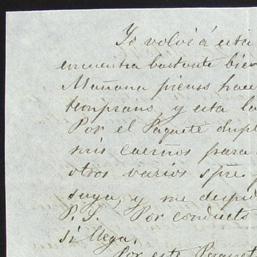 Yo volví á esta
encuentra bastante bien
Mañana pienso hace
temprano, y esta la
Por el Paquete dupl
mis cuernos para
otros varios spre
suya, y me despi
P. S. Por conducto
si llega.
Por este Paquet